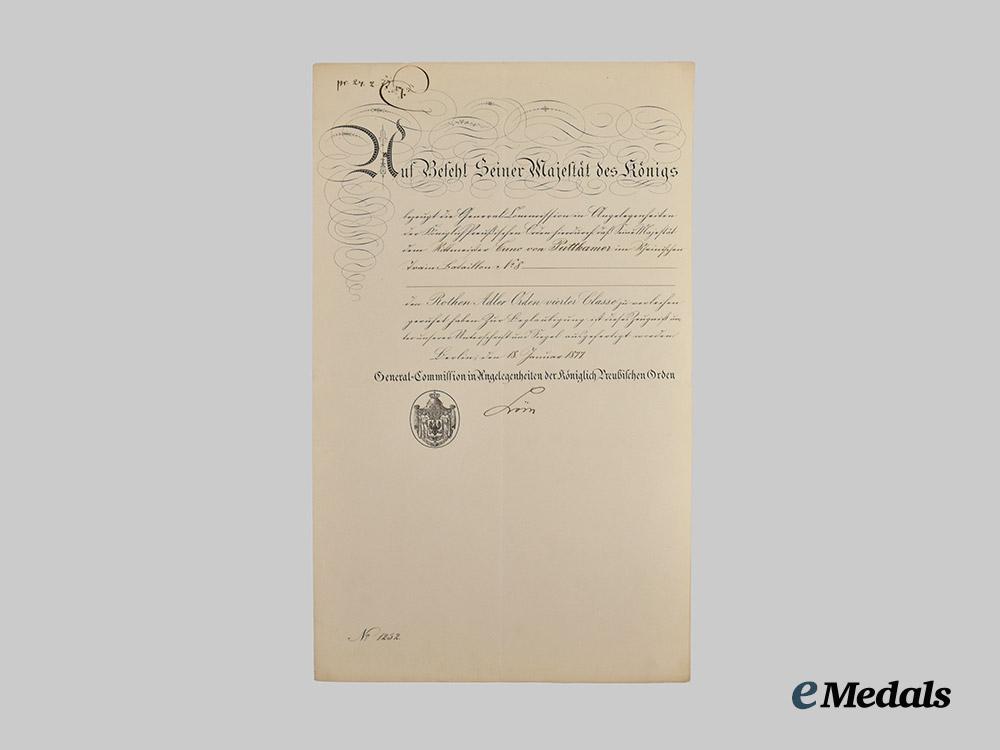 pr. 24. 2
Auf Befehl Seiner Majestät des Königs
bezeugt die General-Commission in Angelegenheiten
der Königlich Preußischen Orden hierdurch daß Seine Majestät
dem Rittmeister Cuno von Puttkamer im Rheinischen
Train-Bataillon No 8
den Rothen Adler Orden vierter Classe zu verleihen
geruhet haben. Zur Beglaubigung ist dieses Zeugniß un
ter unserer Unterschrift und Siegel ausgefertigt worden
Berlin, den 18 Januar 1877
General-Commission in Angelegenheiten der Königlich Preußischen Orden
No 1252.
eMedals